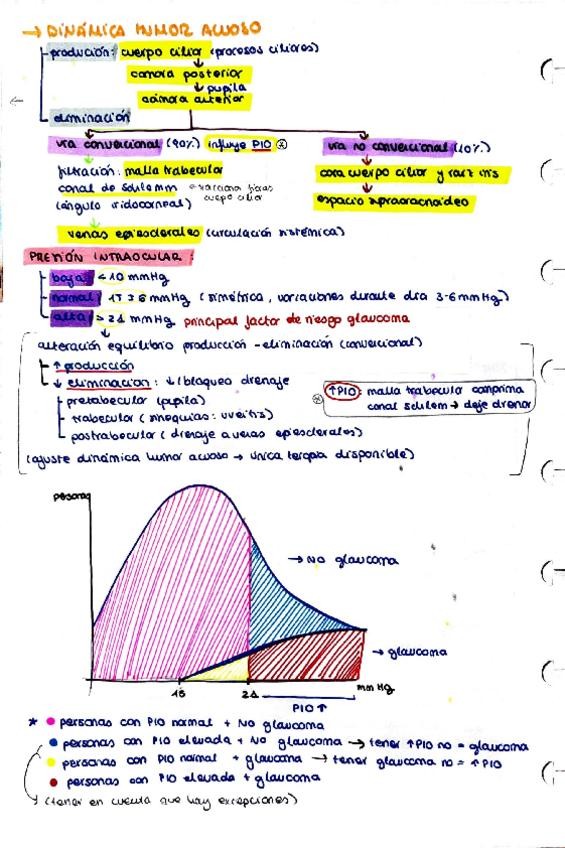 → DINÁMICA HUMOR ACUOSO
produción: cuerpo ciliar (procesos ciliares)
camara posterior
pupila
cámara anterior
eliminación
vía convencional (90%) influye PIO *
vía no convencional (10%)
filtración: malla trabecular
canal de schlemm
(ángulo iridocorneal)
cuerpo ciliar
cara cuerpo ciliar y raíz iris
espacio supraaracnoideo
venas episclerales (circulación sistémica)
PRESIÓN INTRAOCULAR:
baja < 10 mmHg
normal 15 ± 6 mmHg (simétrica, variaciones durante día 3-6mmHg)
alta > 21 mmHg principal factor de riesgo glaucoma
alteración equilibrio producción - eliminación (convencional)
↑ producción
↓ eliminación: ↓/bloqueo drenaje
pretabecular (pupila)
trabecular (sinequias: uveitis)
postrabecular (drenaje a venas episclerales)
(ajuste dinámica humor acuoso → única terapia disponible)
* ↑PIO: malla trabecular comprima
canal schlem → deje drenar
personas
→ NO glaucoma
→ glaucoma
15 21 mm Hg
PIO ↑
* personas con PIO normal + NO glaucoma
personas con PIO elevada + NO glaucoma → tener ↑PIO no = glaucoma
personas con PIO normal + glaucoma → tener glaucoma no = ↑PIO
personas con PIO elevada + glaucoma
(tener en cuenta que hay excepciones)